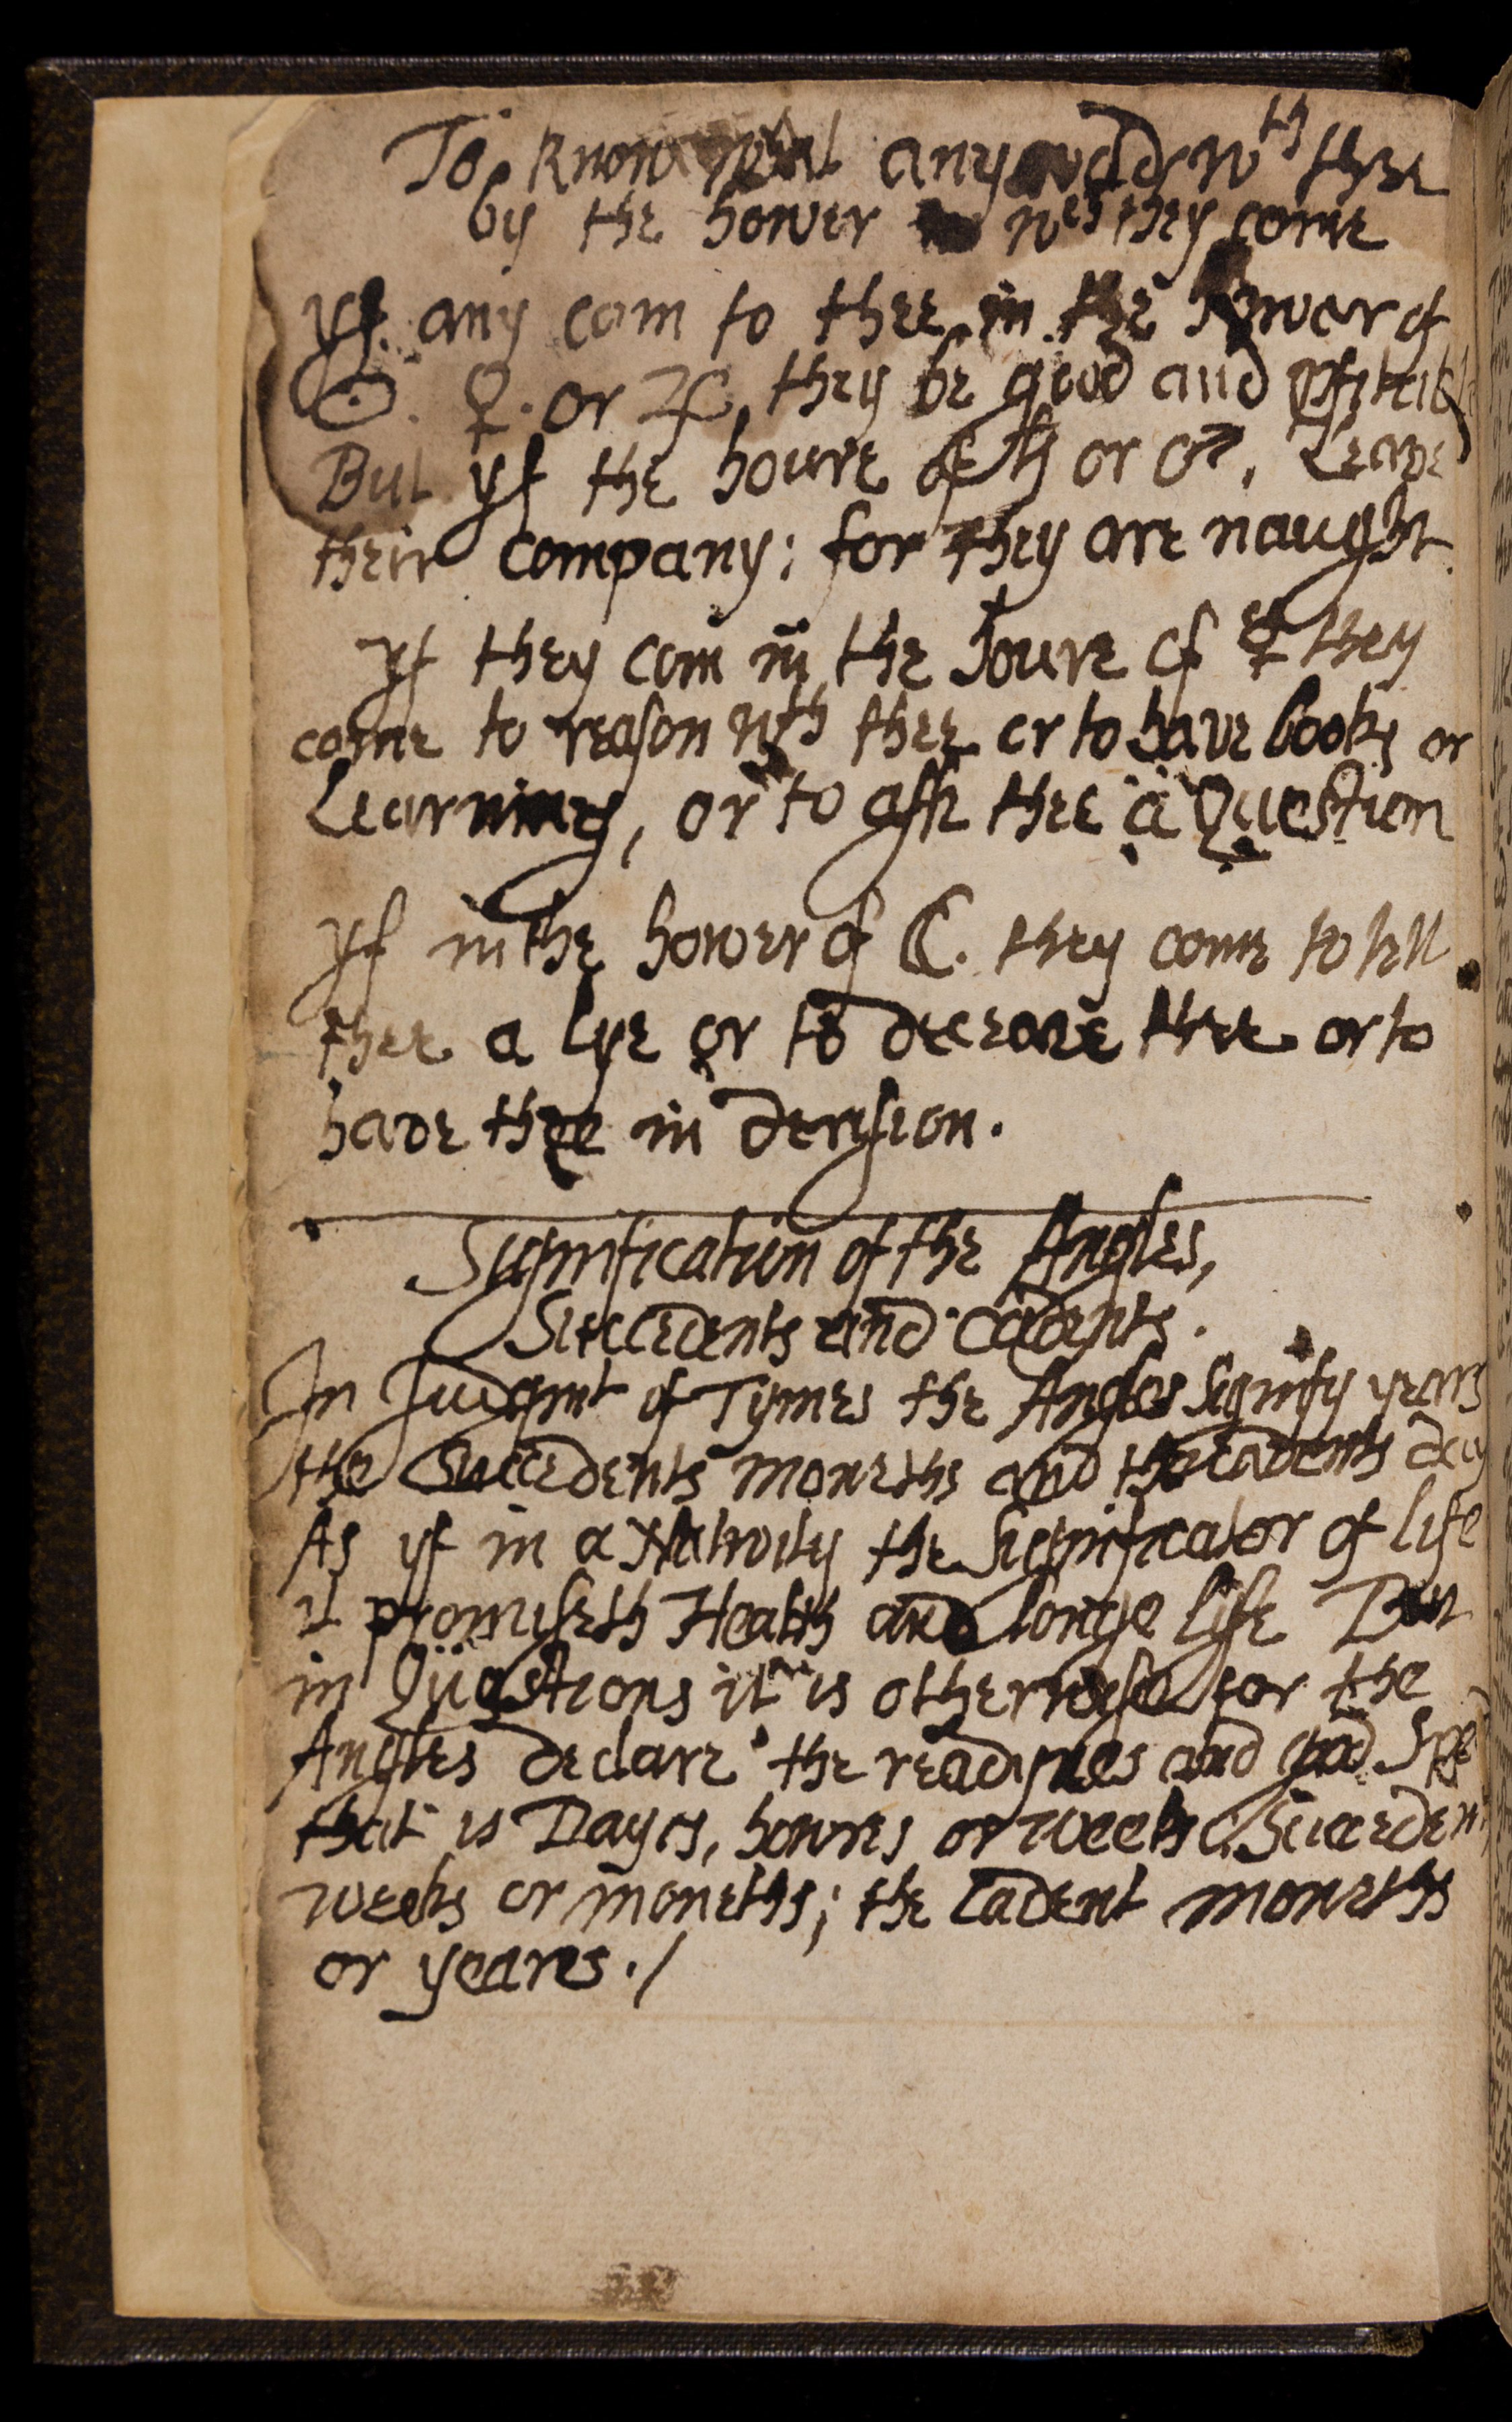 To know what any wold wth thee
by the hower wch they come
yf any com to thee in the hower of
☉. ♀. or ♃, they be good and
But yf the houre of ♄ or ♂, Leave
their company; for they are naught
yf they com in the houre of ☿ they
come to reason wth thee or to have books or
Learninge, or to aske thee a Question
yf in the hower of ☾. they come to tell
thee a lye or to deceave thee or to
have thee in derision.
Signification of the Angles,
Succedents and Cadents.
In Judgmt of Tymes the Angles signify years
the Succedents moneths and the cadents day
As yf in a Nativity the Significator of life
it promiseth Health and longe life But
in Questions it is otherwise for the
Angles declare the readynes and good Spe
that is Dayes, howres or weeks Succeden
weeks or moneths; the Cadent moneths
or yeares./